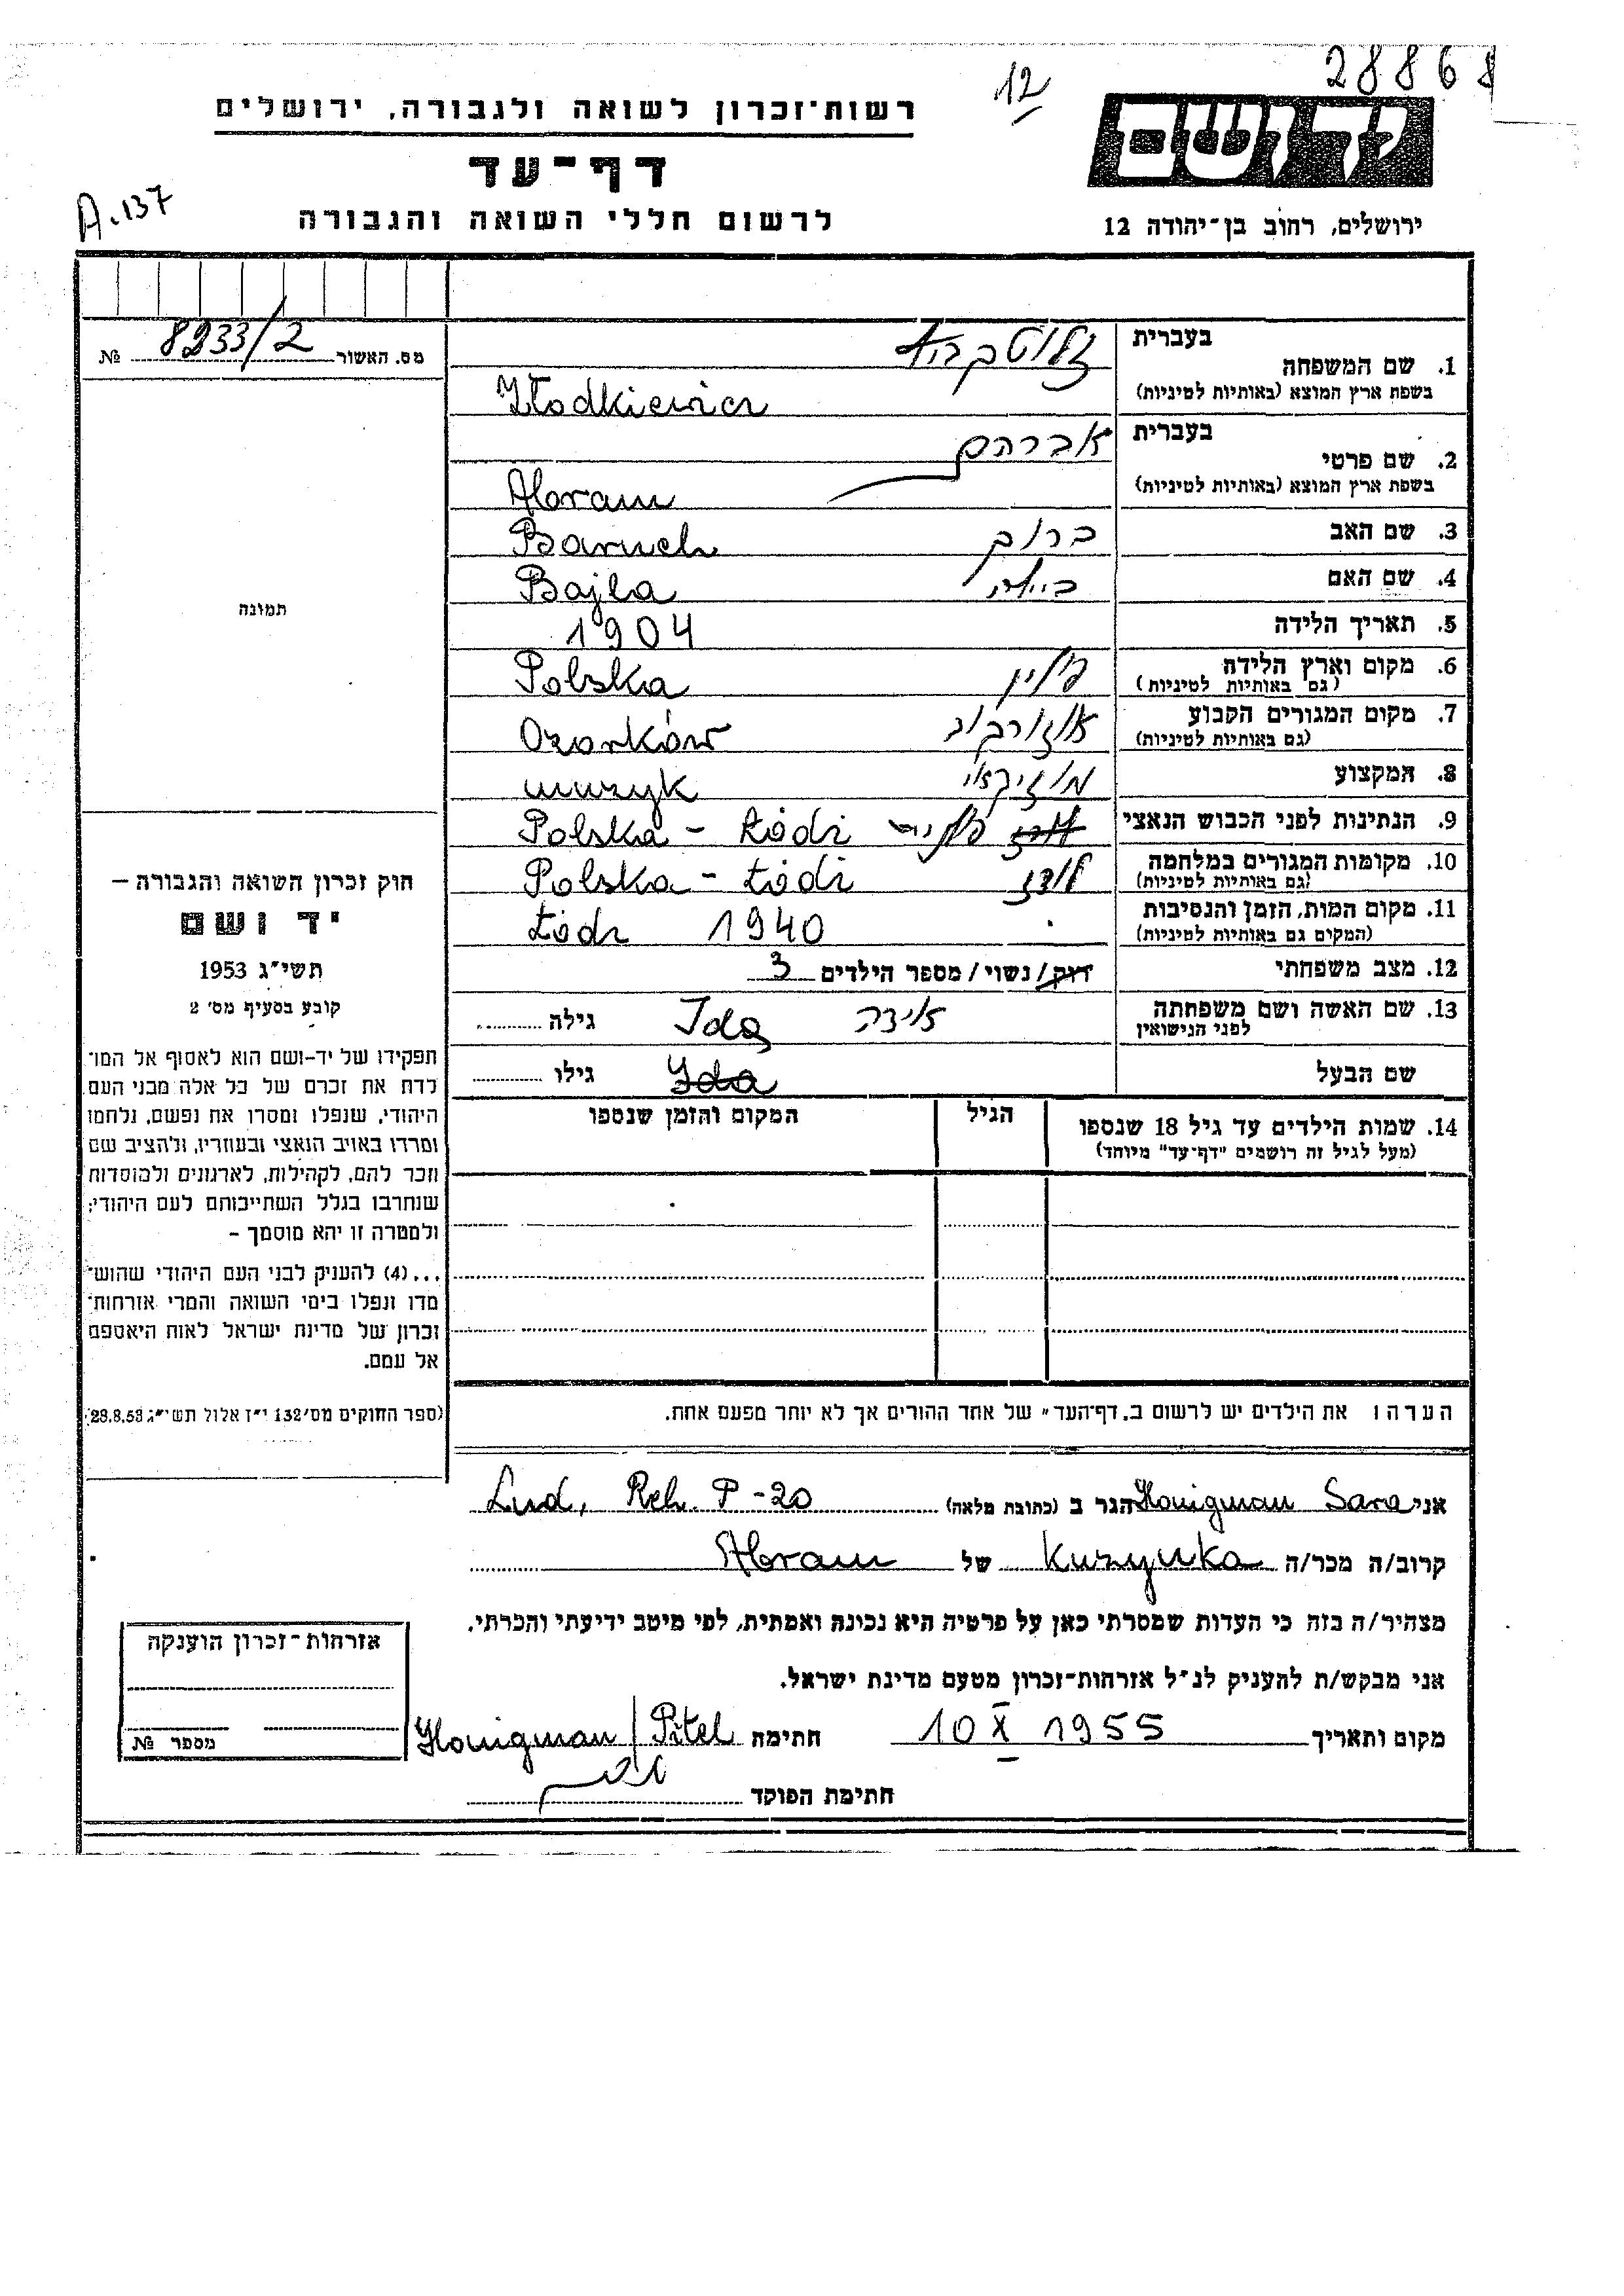 28868
12
רשות־זכרון לשואה ולגבורה, ירושלים
דף־עד
לרשום חללי השואה והגבורה
A.137
ידושם
ירושלים, רחוב בן־יהודה 12
מס. האשור 8233/2 №
תמונה
חוק זכרון השואה והגבורה –
יד ושם
תשי״ג 1953
קובע בסעיף מס׳ 2
תפקידו של יד-ושם הוא לאסוף אל המו־
לדת את זכרם של כל אלה מבני העם
היהודי, שנפלו ומסרו את נפשם, נלחמו
ומרדו באויב הנאצי ובעוזריו, ולהציב שם
וזכר להם, לקהילות, לארגונים ולמוסדות
שנחרבו בגלל השתייכותם לעם היהודי;
ולמטרה זו יהא מוסמך –
...(4) להעניק לבני העם היהודי שהוש־
מדו ונפלו בימי השואה והמרי אזרחות־
זכרון של מדינת ישראל לאות היאספם
אל עמם.
(ספר החוקים מס׳ 132 י״ז אלול תשי״ג 28.8.53)
1. שם המשפחה
בעברית
בשפת ארץ המוצא (באותיות לטיניות) Złodkiewicz
2. שם פרטי
בעברית אברהם
בשפת ארץ המוצא (באותיות לטיניות) Abram
3. שם האב ברוך Baruch
4. שם האם ביילה Bajla
5. תאריך הלידה 1904
6. מקום וארץ הלידה פולין Polska
(גם באותיות לטיניות)
7. מקום המגורים הקבוע אוזורקוב Ozorków
(גם באותיות לטיניות)
8. המקצוע מוזיקאי muzyk
9. הנתינות לפני הכבוש הנאצי לודז פולנית Polska - Łódź
10. מקומות המגורים במלחמה לודז Polska - Łódź
(גם באותיות לטיניות)
11. מקום המות, הזמן והנסיבות Łódź 1940
(המקום גם באותיות לטיניות)
12. מצב משפחתי רוק/ נשוי/ מספר הילדים 3
13. שם האשה ושם משפחתה אידה Ida גילה
לפני הנישואין
שם הבעל Ida גילו
14. שמות הילדים עד גיל 18 שנספו הגיל המקום והזמן שנספו
(מעל לגיל זה רושמים "דף־עד" מיוחד)
הערה ו את הילדים יש לרשום ב„דף־העד״ של אחד ההורים אך לא יותר מפעם אחת.
אני Honigman Sara הגר ב (כתובת מלאה) Lud, Reh. P-20
קרוב/ה מכר/ה Kuzynka של Abram
מצהיר/ה בזה כי העדות שמסרתי כאן על פרטיה היא נכונה ואמתית, לפי מיטב ידיעתי והכרתי.
אני מבקש/ת להעניק לנ״ל אזרחות־זכרון מטעם מדינת ישראל.
מקום ותאריך 10 X 1955 חתימה Honigman / Pitel
חתימת הפוקד
אזרחות־זכרון הוענקה
מספר №